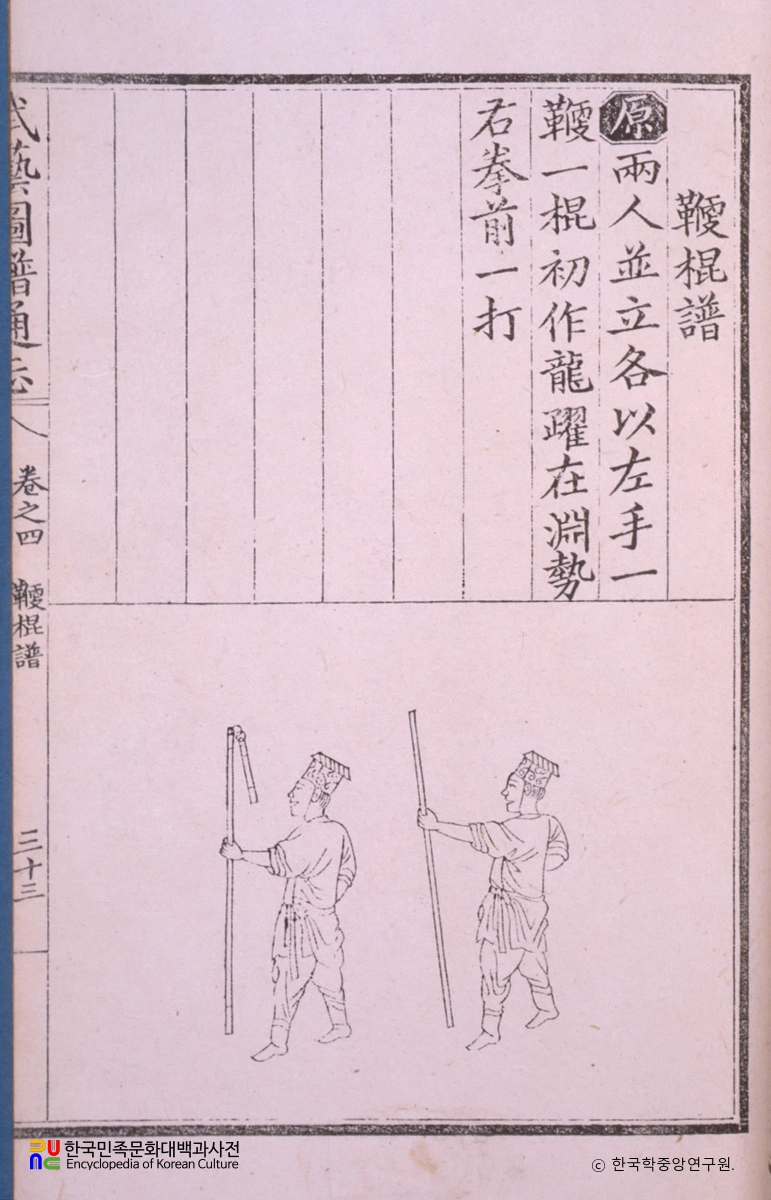 鞭棍譜
原 兩人並立各以左手一
鞭一棍初作龍躍在淵勢
右拳前一打
武藝圖譜通志
卷之四
鞭棍譜
三十三
한국민족문화대백과사전
Encyclopedia of Korean Culture
ⓒ 한국학중앙연구원.